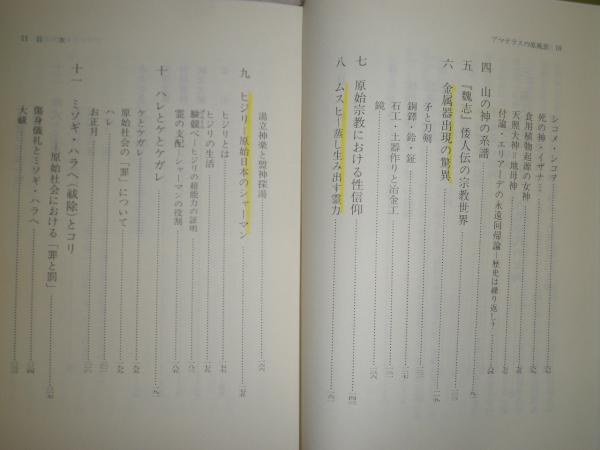 アマテラスの原風景 10
シコメ・シコヲ
死の神・イザナミ
食用植物起源の女神
天照大神＝地母神
付論・エリアーデの永遠回帰論 歴史は繰り返し？
四 山の神の系譜
五 『魏志』倭人伝の宗教世界
六 金属器出現の驚異
矛と刀剣
銅鐸・鈴・鉦
石工・土器作りと冶金工
鏡
七 原始宗教における性信仰
八 ムスヒ―蒸し生み出す霊力
11 目 次
湯立神楽と盟神探湯
九 ヒジリ―原始日本のシャーマン
ヒジリとは
ヒジリの生活
験競べ―ヒジリの超能力の証明
霊の支配―シャーマンの役割
十 ハレとケとケガレ
ケとケガレ
原始社会の「罪」について
ハレ
お正月
十一 ミソギ・ハラヘ(祓除)とコリ
原始社会における「罪と罰」
傷身儀礼とミソギ・ハラヘ
大祓